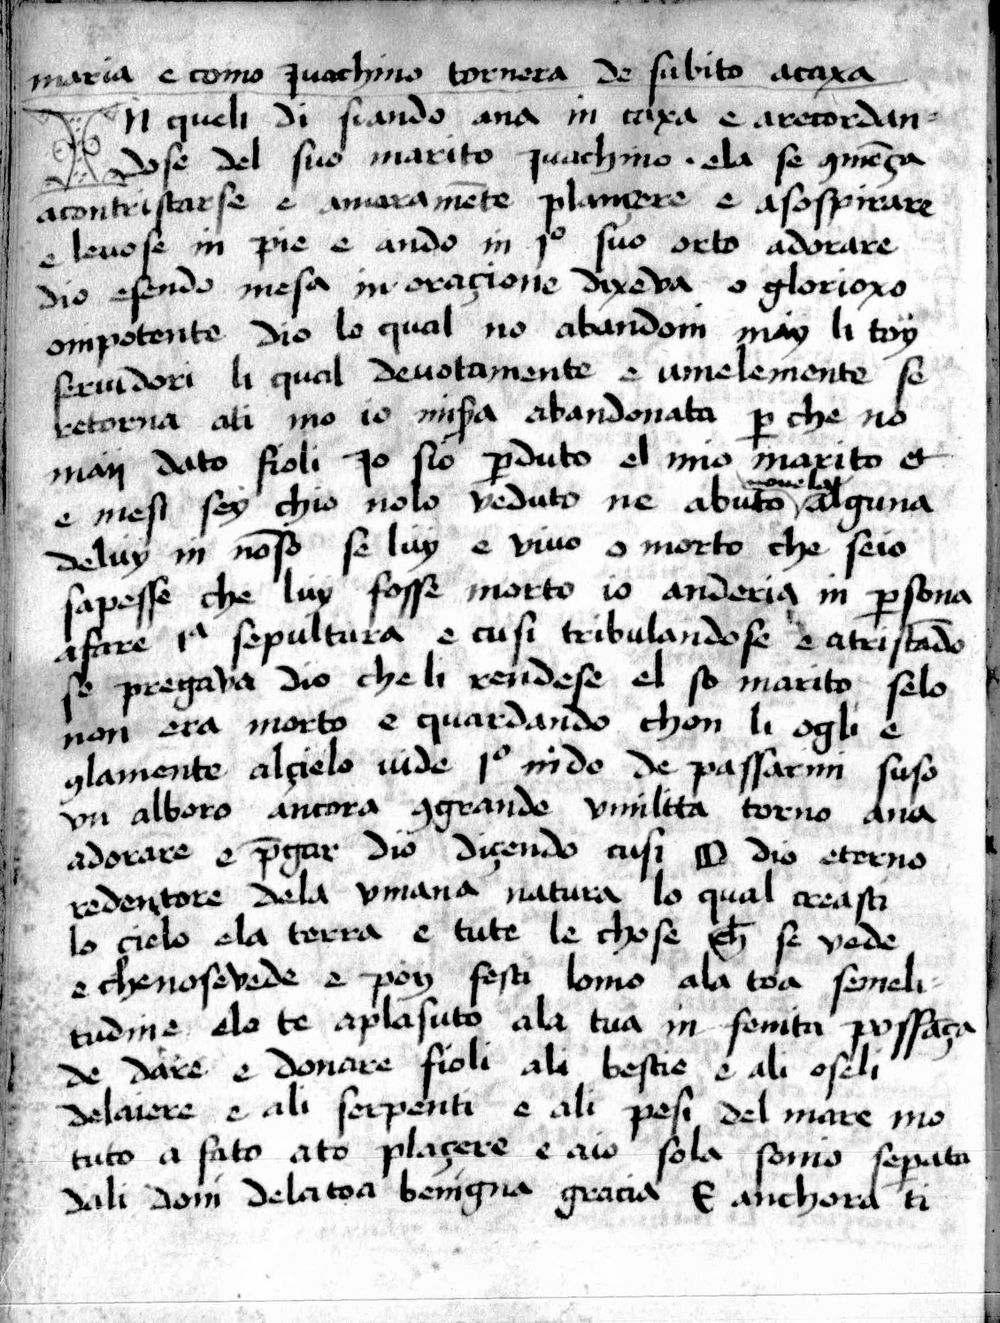 maria e como Juachino tornera de subito acaxa
IN queli di stando ana in caxa e arecordan=
dose del suo marito Juachino · ela se ꝯmẽça
acontristarse e amaramẽte plançere e asospirare
e levose in pie e ando in 1º suo orto adorare
dio esendo mesa in oraçione dixeva o glorioxo
onipotente dio lo qual no abandoni may li toy
servidori li qual devotamente e umelemente se
retorna ati mo io mis̃a abandonata ꝑ che no
maii dato fioli Jo sio ꝑduto el mio marito et
e mesi sey chio nolo veduto ne abuto novela alguna
deluy in nõso se luy e vivo o morto che seio
sapesse che luy fosse morto io anderia in ꝑsona
afare 1ª sepultura e cusi tribulandose e atristãdo
se pregava dio cheli rendese el so marito selo
non era morto e guardando chon li ogli e
ꝯlamente alçielo vide 1º nido de passarini suso
un alboro ancora ꝯgrande umilita torno ana
adorare e p̃gar dio diçendo cusi O dio eterno
redentore dela umana natura lo qual creasti
lo çielo ela terra e tute le chose ch̃ se vede
e chenosevede e poy festi lomo ala toa semeli=
tudine elo te aplasuto ala tua in fenita possãça
de dare e donare fioli ali bestie e ali oseli
delaiere e ali serpenti e ali pesi del mare mo
tuto a fato ato plaçere e aio sola sonio seꝑata
dali doni dela toa benigna gracia E anchora ti